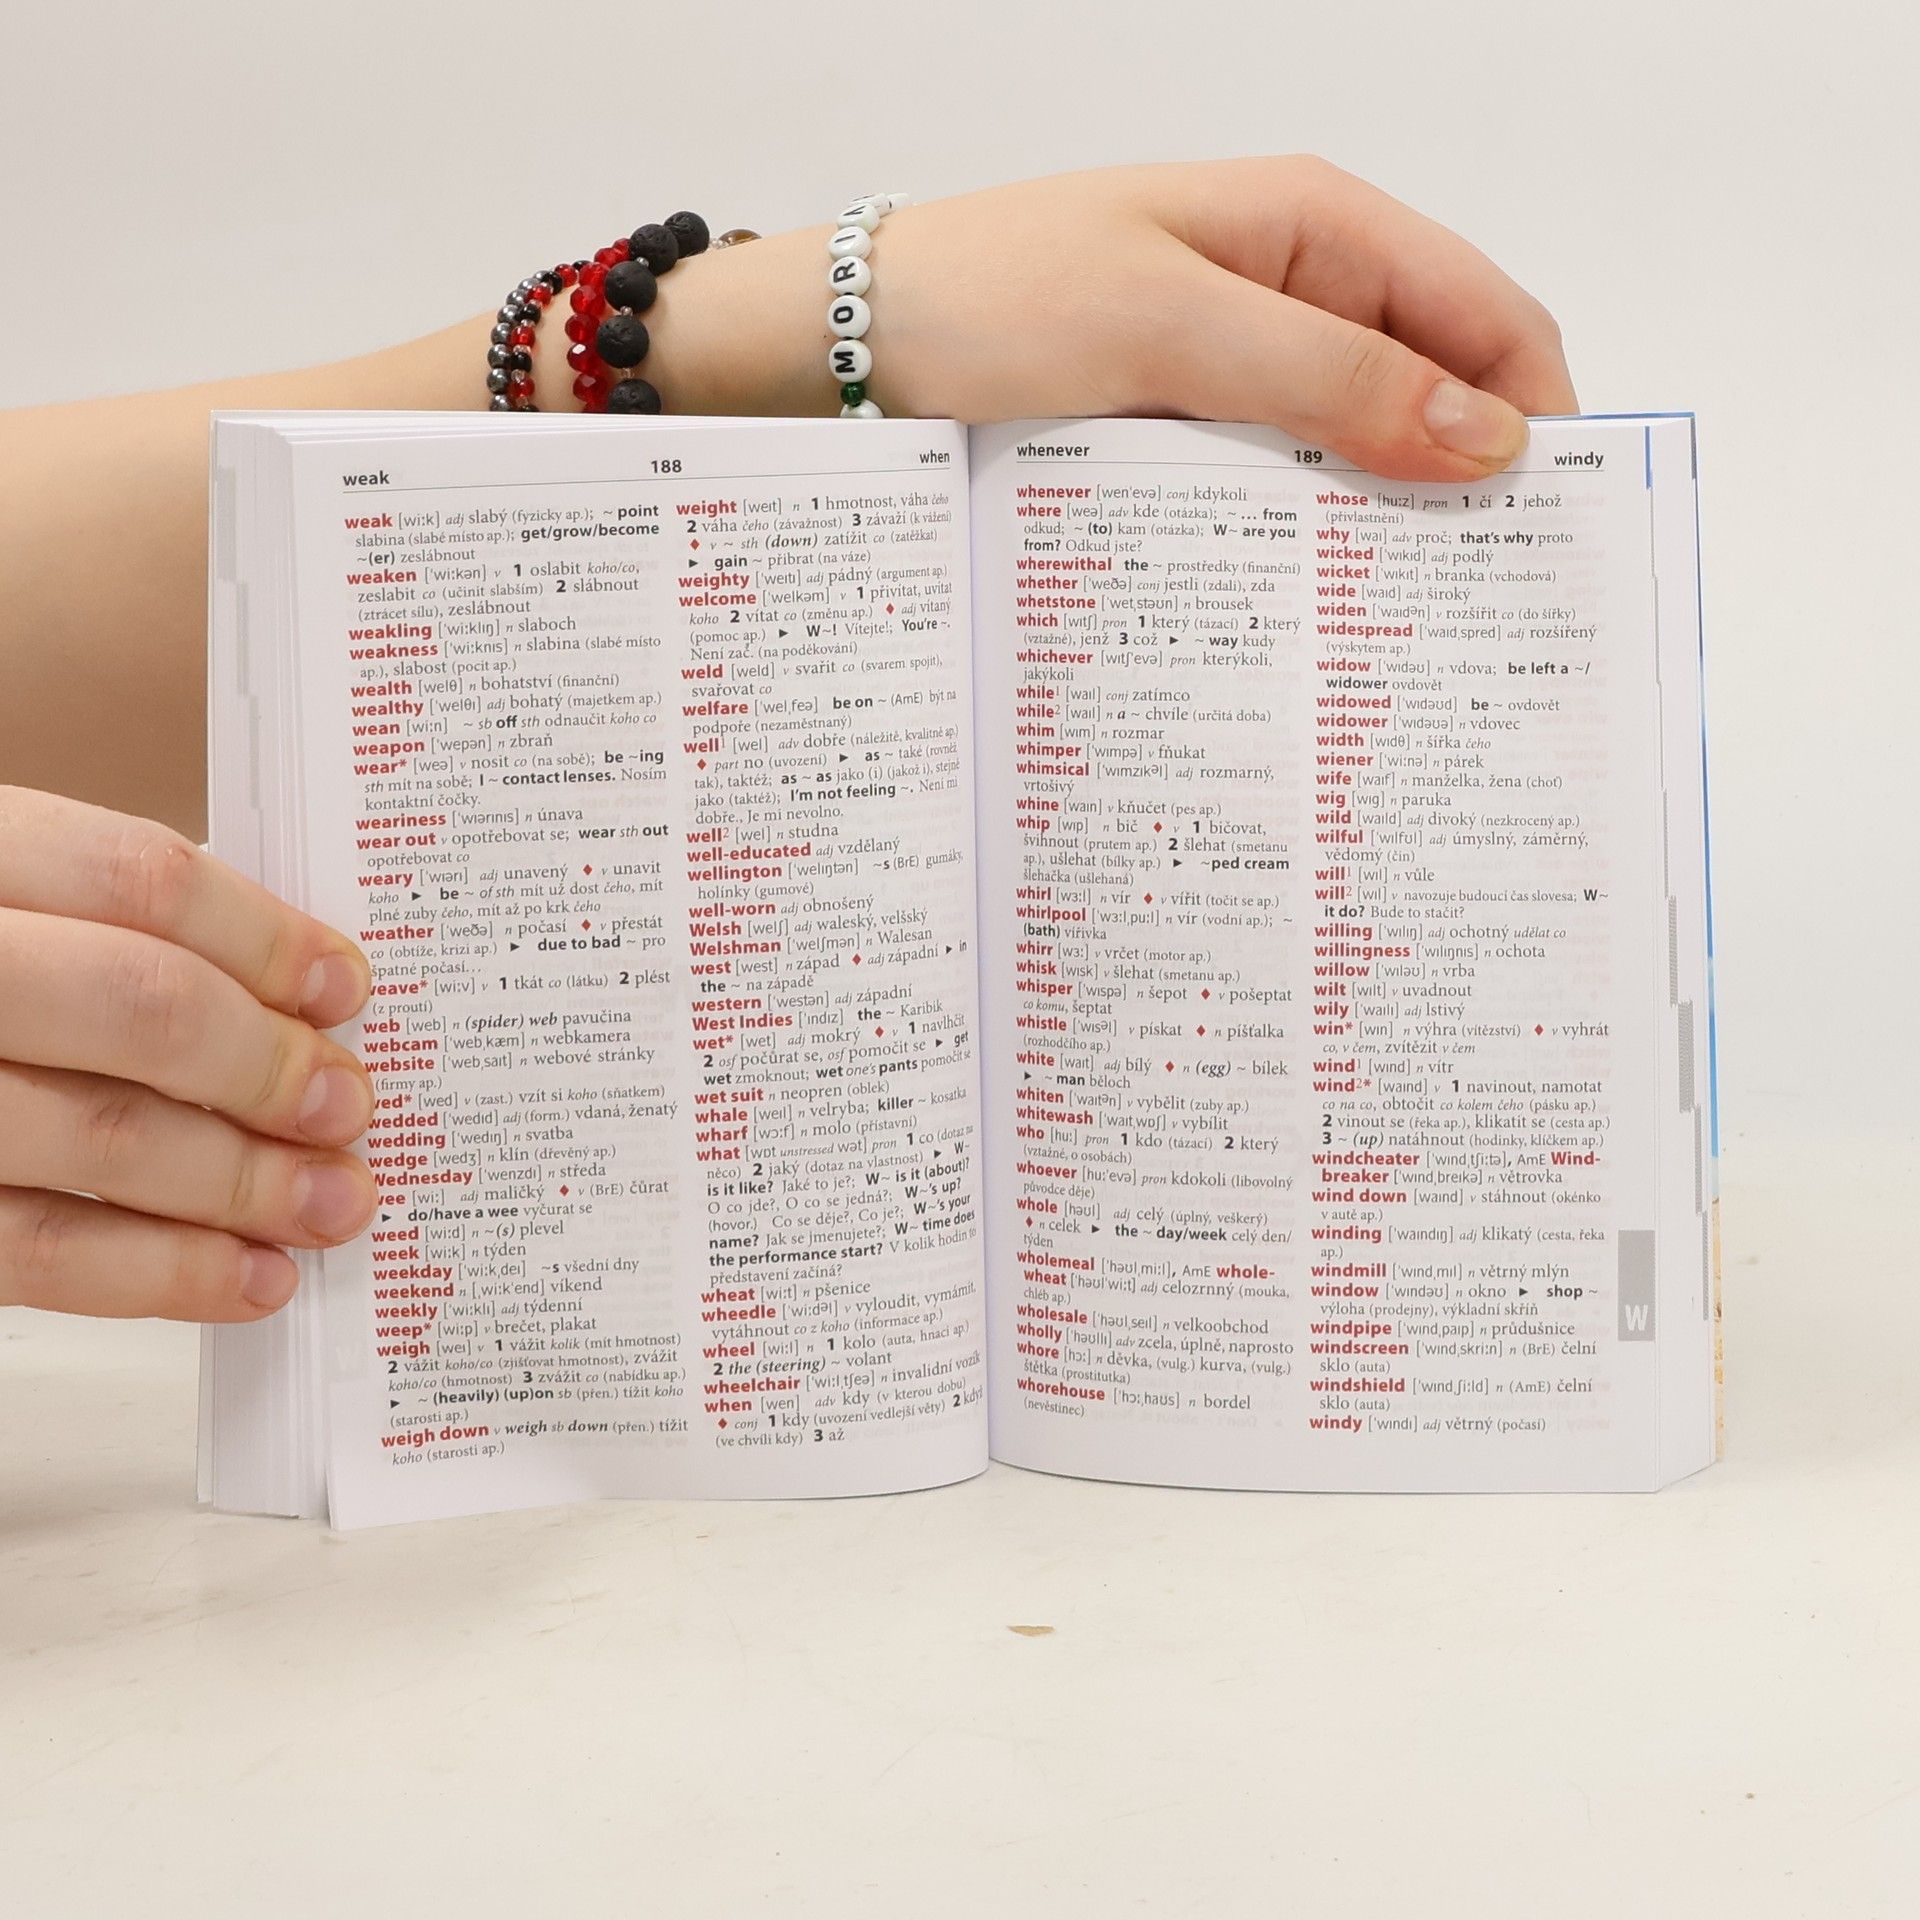 MORIA
weak 188 when
weak [wiːk] adj slabý (fyzicky ap.); ~ point
slabina (slabé místo ap.); get/grow/become
~(er) zeslábnout
weaken [ˈwiːkən] v 1 oslabit koho/co,
zeslabit co (učinit slabším) 2 slábnout
(ztrácet sílu), zeslábnout
weakling [ˈwiːklɪŋ] n slaboch
weakness [ˈwiːknɪs] n slabina (slabé místo
ap.), slabost (pocit ap.)
wealth [welθ] n bohatství (finanční)
wealthy [ˈwelθɪ] adj bohatý (majetkem ap.)
wean [wiːn] ~ sb off sth odnaučit koho co
weapon [ˈwepən] n zbraň
wear* [weə] v nosit co (na sobě); be ~ing
sth mít na sobě; I ~ contact lenses. Nosím
kontaktní čočky.
weariness [ˈwɪərɪnɪs] n únava
wear out v opotřebovat se; wear sth out
opotřebovat co
weary [ˈwɪərɪ] adj unavený ♦ v unavit
koho ► be ~ of sth mít už dost čeho, mít
plné zuby čeho, mít až po krk čeho
weather [ˈweðə] n počasí ♦ v přestát
co (obtíže, krizi ap.) ► due to bad ~ pro
špatné počasí…
weave* [wiːv] v 1 tkát co (látku) 2 plést
(z proutí)
web [web] n (spider) web pavučina
webcam [ˈwebˌkæm] n webkamera
website [ˈwebˌsaɪt] n webové stránky
(firmy ap.)
wed* [wed] v (zast.) vzít si koho (sňatkem)
wedded [ˈwedɪd] adj (form.) vdaná, ženatý
wedding [ˈwedɪŋ] n svatba
wedge [wedʒ] n klín (dřevěný ap.)
Wednesday [ˈwenzdɪ] n středa
wee [wiː] adj maličký ♦ v (BrE) čůrat
► do/have a wee vyčurat se
weed [wiːd] n ~(s) plevel
week [wiːk] n týden
weekday [ˈwiːkˌdeɪ] ~s všední dny
weekend n [ˌwiːkˈend] víkend
weekly [ˈwiːklɪ] adj týdenní
weep* [wiːp] v brečet, plakat
weigh [weɪ] v 1 vážit kolik (mít hmotnost)
2 vážit koho/co (zjišťovat hmotnost), zvážit
koho/co (hmotnost) 3 zvážit co (nabídku ap.)
► ~ (heavily) (up)on sb (přen.) tížit koho
(starosti ap.)
weigh down v weigh sb down (přen.) tížit
koho (starosti ap.)
weight [weɪt] n 1 hmotnost, váha čeho
2 váha čeho (závažnost) 3 závaží (k vážení)
♦ v ~ sth (down) zatížit co (zatěžkat)
► gain ~ přibrat (na váze)
weighty [ˈweɪtɪ] adj pádný (argument ap.)
welcome [ˈwelkəm] v 1 přivítat, uvítat
koho 2 vítat co (změnu ap.) ♦ adj vítaný
(pomoc ap.) ► W~! Vítejte!; You're ~.
Není zač. (na poděkování)
weld [weld] v svařit co (svarem spojit),
svařovat co
welfare [ˈwelˌfeə] be on ~ (AmE) být na
podpoře (nezaměstnaný)
well¹ [wel] adv dobře (náležitě, kvalitně ap.)
♦ part no (uvození) ► as ~ také (rovněž
tak), taktéž; as ~ as jako (i) (jakož i), stejně
jako (taktéž); I'm not feeling ~. Není mi
dobře., Je mi nevolno.
well² [wel] n studna
well-educated adj vzdělaný
wellington [ˈwelɪŋtən] ~s (BrE) gumáky,
holínky (gumové)
well-worn adj obnošený
Welsh [welʃ] adj waleský, velšský
Welshman [ˈwelʃmən] n Walesan
west [west] n západ ♦ adj západní ► in
the ~ na západě
western [ˈwestən] adj západní
West Indies [ˈɪndɪz] the ~ Karibik
wet* [wet] adj mokrý ♦ v 1 navlhčit
2 osf počůrat se, osf pomočit se ► get
wet zmoknout; wet one's pants pomočit se
wet suit n neopren (oblek)
whale [weɪl] n velryba; killer ~ kosatka
wharf [wɔːf] n molo (přístavní)
what [wɒt unstressed wət] pron 1 co (dotaz na
něco) 2 jaký (dotaz na vlastnost) ► W~
is it like? Jaké to je?; W~ is it (about)?
O co jde?, O co se jedná?; W~'s up?
(hovor.) Co se děje?, Co je?; W~'s your
name? Jak se jmenujete?; W~ time does
the performance start? V kolik hodin to
představení začíná?
wheat [wiːt] n pšenice
wheedle [ˈwiːdᵊl] v vyloudit, vymámit,
vytáhnout co z koho (informace ap.)
wheel [wiːl] n 1 kolo (auta, hnací ap.)
2 the (steering) ~ volant
wheelchair [ˈwiːlˌtʃeə] n invalidní vozík
when [wen] adv kdy (v kterou dobu)
♦ conj 1 kdy (uvození vedlejší věty) 2 když
(ve chvíli kdy) 3 až
whenever 189 windy
whenever [wenˈevə] conj kdykoli
where [weə] adv kde (otázka); ~ … from
odkud; ~ (to) kam (otázka); W~ are you
from? Odkud jste?
wherewithal the ~ prostředky (finanční)
whether [ˈweðə] conj jestli (zdali), zda
whetstone [ˈwetˌstəʊn] n brousek
which [wɪtʃ] pron 1 který (tázací) 2 který
(vztažné), jenž 3 což ► ~ way kudy
whichever [wɪtʃˈevə] pron kterýkoli,
jakýkoli
while¹ [waɪl] conj zatímco
while² [waɪl] n a ~ chvíle (určitá doba)
whim [wɪm] n rozmar
whimper [ˈwɪmpə] v fňukat
whimsical [ˈwɪmzɪkᵊl] adj rozmarný,
vrtošivý
whine [waɪn] v kňučet (pes ap.)
whip [wɪp] n bič ♦ v 1 bičovat,
švihnout (prutem ap.) 2 šlehat (smetanu
ap.), ušlehat (bílky ap.) ► ~ped cream
šlehačka (ušlehaná)
whirl [wɜːl] n vír ♦ v vířit (točit se ap.)
whirlpool [ˈwɜːlˌpuːl] n vír (vodní ap.); ~
(bath) vířivka
whirr [wɜː] v vrčet (motor ap.)
whisk [wɪsk] v šlehat (smetanu ap.)
whisper [ˈwɪspə] n šepot ♦ v pošeptat
co komu, šeptat
whistle [ˈwɪsᵊl] v pískat ♦ n píšťalka
(rozhodčího ap.)
white [waɪt] adj bílý ♦ n (egg) ~ bílek
► ~ man běloch
whiten [ˈwaɪtᵊn] v vybělit (zuby ap.)
whitewash [ˈwaɪtˌwɒʃ] v vybílit
who [huː] pron 1 kdo (tázací) 2 který
(vztažné, o osobách)
whoever [huːˈevə] pron kdokoli (libovolný
původce děje)
whole [həʊl] adj celý (úplný, veškerý)
♦ n celek ► the ~ day/week celý den/
týden
wholemeal [ˈhəʊlˌmiːl], AmE whole-
wheat [ˈhəʊlˈwiːt] adj celozrnný (mouka,
chléb ap.)
wholesale [ˈhəʊlˌseɪl] n velkoobchod
wholly [ˈhəʊllɪ] adv zcela, úplně, naprosto
whore [hɔː] n děvka, (vulg.) kurva, (vulg.)
štětka (prostitutka)
whorehouse [ˈhɔːˌhaʊs] n bordel
(nevěstinec)
whose [huːz] pron 1 čí 2 jehož
(přivlastnění)
why [waɪ] adv proč; that's why proto
wicked [ˈwɪkɪd] adj podlý
wicket [ˈwɪkɪt] n branka (vchodová)
wide [waɪd] adj široký
widen [ˈwaɪdᵊn] v rozšířit co (do šířky)
widespread [ˈwaɪdˌspred] adj rozšířený
(výskytem ap.)
widow [ˈwɪdəʊ] n vdova; be left a ~/
widower ovdovět
widowed [ˈwɪdəʊd] be ~ ovdovět
widower [ˈwɪdəʊə] n vdovec
width [wɪdθ] n šířka čeho
wiener [ˈwiːnə] n párek
wife [waɪf] n manželka, žena (choť)
wig [wɪg] n paruka
wild [waɪld] adj divoký (nezkrocený ap.)
wilful [ˈwɪlfʊl] adj úmyslný, záměrný,
vědomý (čin)
will¹ [wɪl] n vůle
will² [wɪl] v navozuje budoucí čas slovesa; W~
it do? Bude to stačit?
willing [ˈwɪlɪŋ] adj ochotný udělat co
willingness [ˈwɪlɪŋnɪs] n ochota
willow [ˈwɪləʊ] n vrba
wilt [wɪlt] v uvadnout
wily [ˈwaɪlɪ] adj lstivý
win* [wɪn] n výhra (vítězství) ♦ v vyhrát
co, v čem, zvítězit v čem
wind¹ [wɪnd] n vítr
wind²* [waɪnd] v 1 navinout, namotat
co na co, obtočit co kolem čeho (pásku ap.)
2 vinout se (řeka ap.), klikatit se (cesta ap.)
3 ~ (up) natáhnout (hodinky, klíčkem ap.)
windcheater [ˈwɪndˌtʃiːtə], AmE Wind-
breaker [ˈwɪndˌbreɪkə] n větrovka
wind down [waɪnd] v stáhnout (okénko
v autě ap.)
winding [ˈwaɪndɪŋ] adj klikatý (cesta, řeka
ap.)
windmill [ˈwɪndˌmɪl] n větrný mlýn
window [ˈwɪndəʊ] n okno ► shop ~
výloha (prodejny), výkladní skříň
windpipe [ˈwɪndˌpaɪp] n průdušnice
windscreen [ˈwɪndˌskriːn] n (BrE) čelní
sklo (auta)
windshield [ˈwɪndˌʃiːld] n (AmE) čelní
sklo (auta)
windy [ˈwɪndɪ] adj větrný (počasí)
W